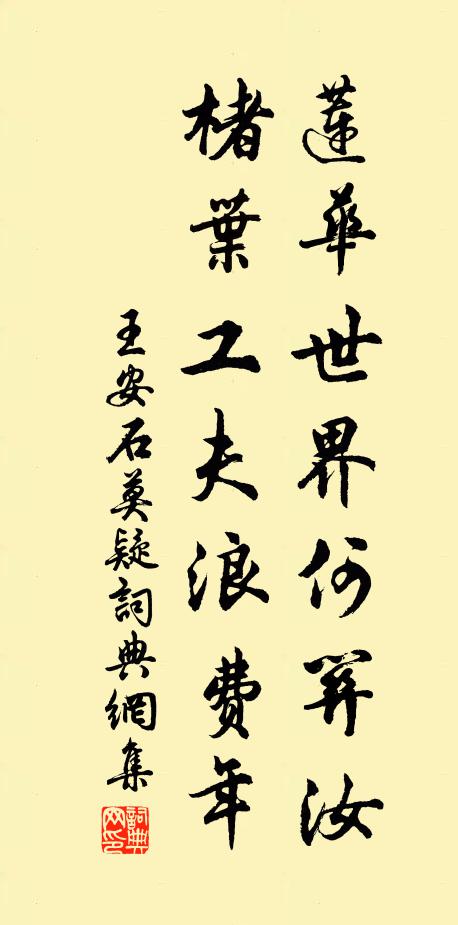 蓮華世界何關汝
楮葉工夫浪費年
王安石莫疑詞典網集
詞典网印